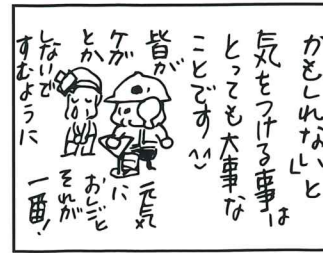 かもしれない」と
気をつける事は
とっても大事な
ことです^^
皆が
ケガ
とか
しないで
すむように
元気
に
おしごと
それが
一番!